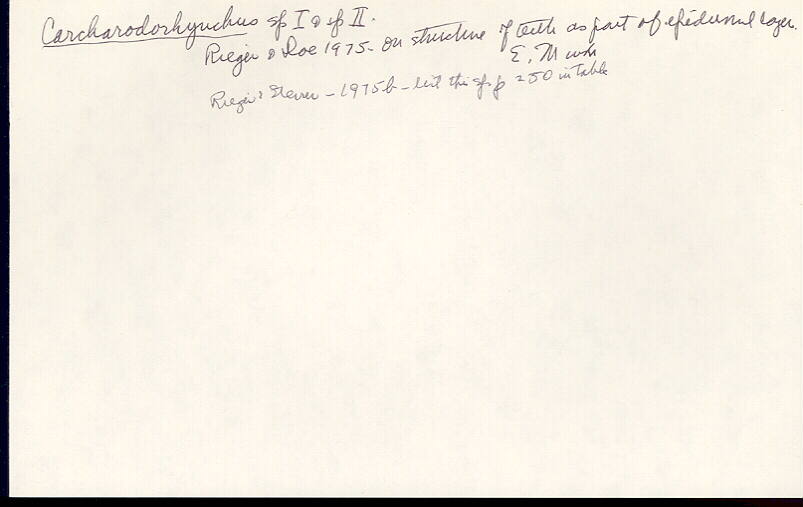 Carcharodorhynchus sp I & sp II.
Rieger & Doe 1975 - on structure of teeth as part of epidermal layer.
E. M work
Rieger & Sterrer - 1975b - list this sp p 250 in table